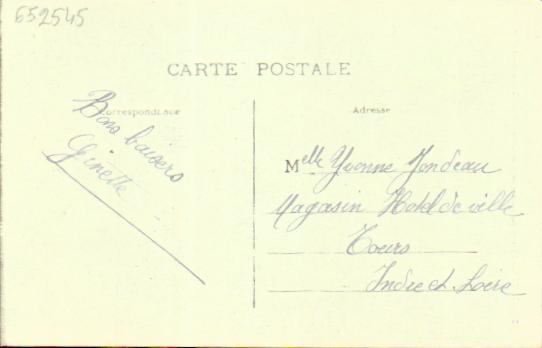 652545
CARTE POSTALE
Correspondance
Adresse
Bons baisers
Ginette
Melle Yvonne Jondeau
Magasin Hotel de ville
Tours
Indre et Loire